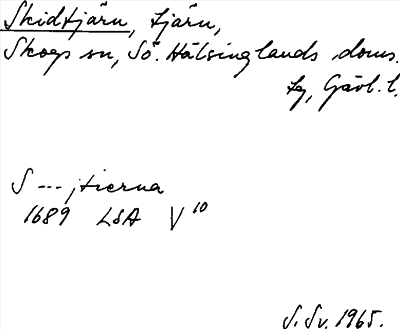 Skidtjärn, tjärn,
Skogs sn, Sö. Hälsinglands doms.
tg, Gävl. l.
S---tierna
1689 LSA V¹⁰
S. Sv. 1965.